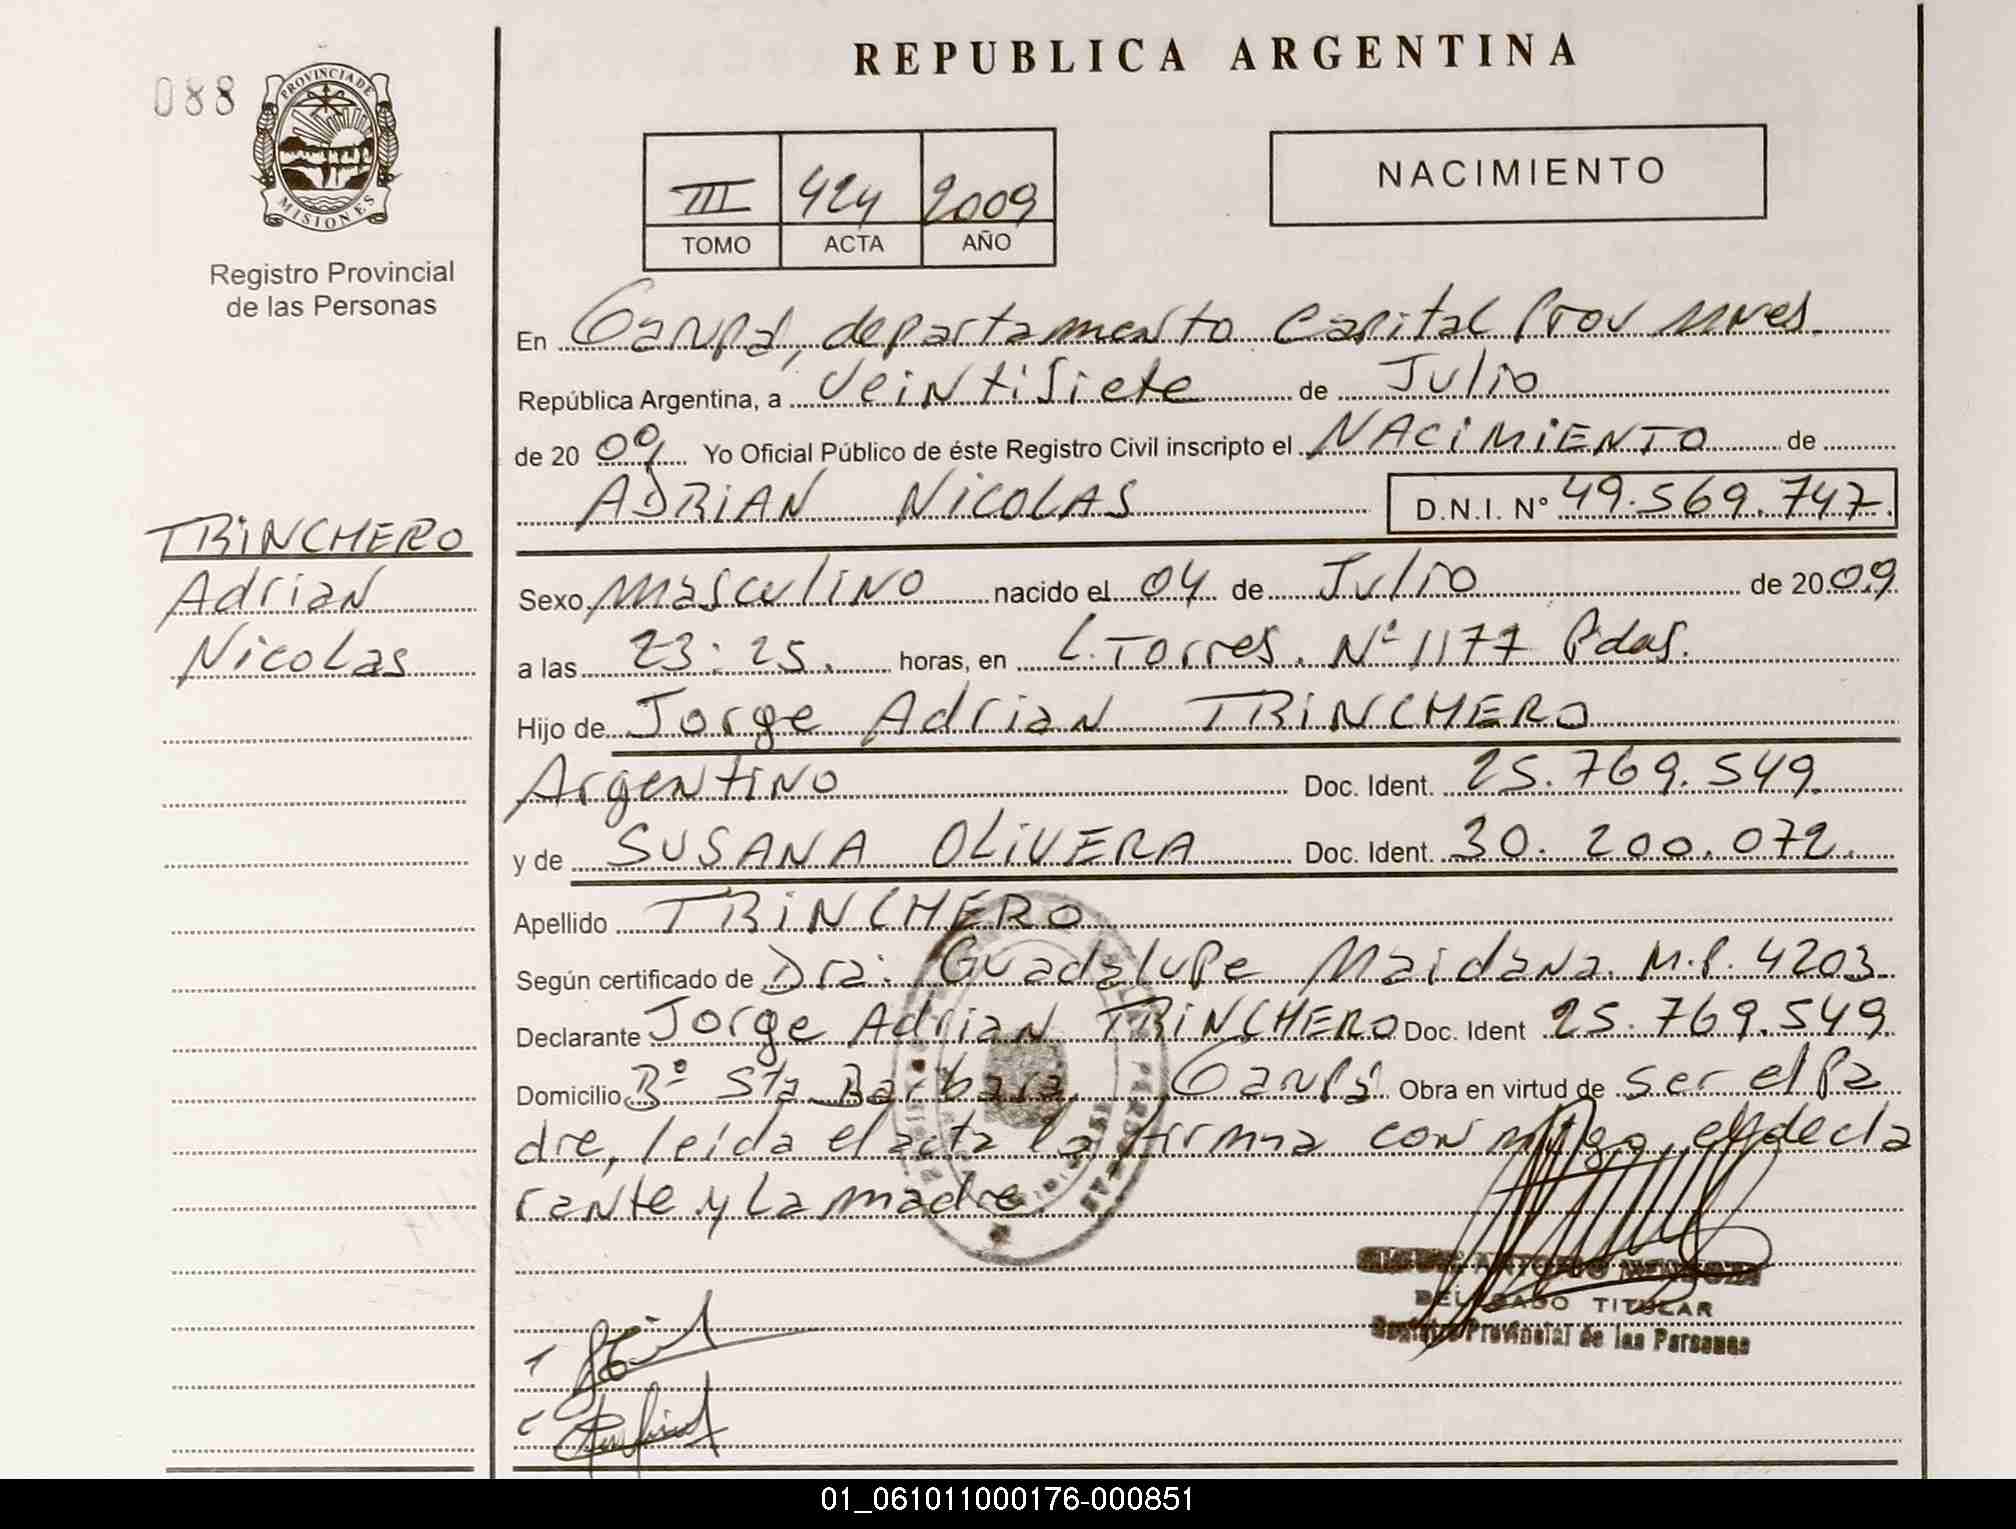 REPUBLICA ARGENTINA
088
PROVINCIA DE
MISIONES
Registro Provincial
de las Personas
III 424 2009
TOMO ACTA AÑO
NACIMIENTO
En Garupá, departamento Capital Prov Mnes.
República Argentina, a Veintisiete de Julio
de 20 09 Yo Oficial Público de éste Registro Civil inscripto el NACIMIENTO de
ADRIAN NICOLAS D.N.I. Nº 49.569.747.
TRINCHERO
Adrian
Nicolas
Sexo Masculino nacido el 04 de Julio de 20 09
a las 23:25. horas, en L. Torres. Nº 1177 Pdas.
Hijo de Jorge Adrian TRINCHERO
Argentino Doc. Ident. 25.769.549.
y de SUSANA OLIVERA Doc. Ident. 30.200.072.
Apellido TRINCHERO
Según certificado de Dra: Guadalupe Maidana. M.P. 4203
Declarante Jorge Adrian TRINCHERO Doc. Ident 25.769.549
Domicilio Bº Sta Barbara, Garupá Obra en virtud de ser el Pa
dre, leída el acta la firma conmigo, el decla
rante y La madre
ANTONIO MENDOZA
DELEGADO TITULAR
Registro Provincial de las Personas
01_061011000176-000851